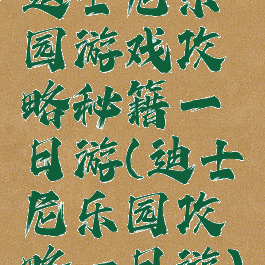 迪士尼乐
园游戏攻
略秘籍一
日游(迪士
尼乐园攻
略一日游)